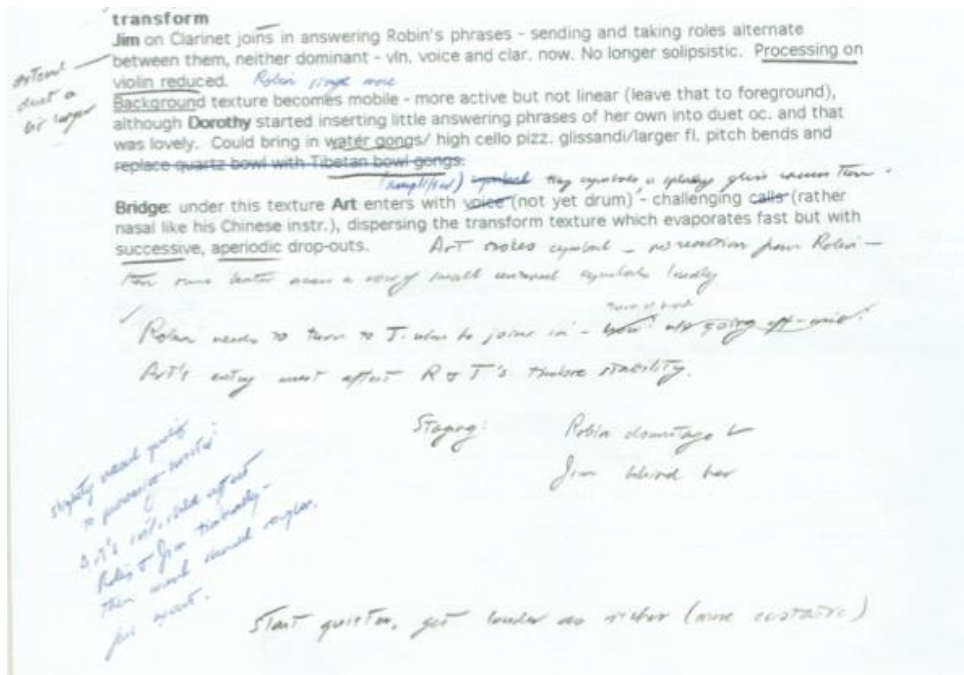 transform
Jim on Clarinet joins in answering Robin's phrases - sending and taking roles alternate
between them, neither dominant - vln. voice and clar. now. No longer solipsistic. Processing on
violin reduced. Robin sings more
extend
duet a
bit longer
Background texture becomes mobile - more active but not linear (leave that to foreground),
although Dorothy started inserting little answering phrases of her own into duet oc. and that
was lovely. Could bring in water gongs/ high cello pizz. glissandi/larger fl. pitch bends and
replace quartz bowl with Tibetan bowl gongs.
(amplified) cymbals
Bridge: under this texture Art enters with voice (not yet drum) - challenging calls (rather
nasal like his Chinese instr.), dispersing the transform texture which evaporates fast but with
successive, aperiodic drop-outs. Art strokes cymbal - no reaction from Robin -
then runs beater across a row of small cymbals loudly
Robin needs to turn to J. when he joins in -
Art's entry must affect R & J's timbre stability.
Staging: Robin downstage L
Jim behind her
slightly nasal quality
to
Art's affect
Robin & Jim timbrally -
then
Start quieter, get louder as richer (more ecstatic)